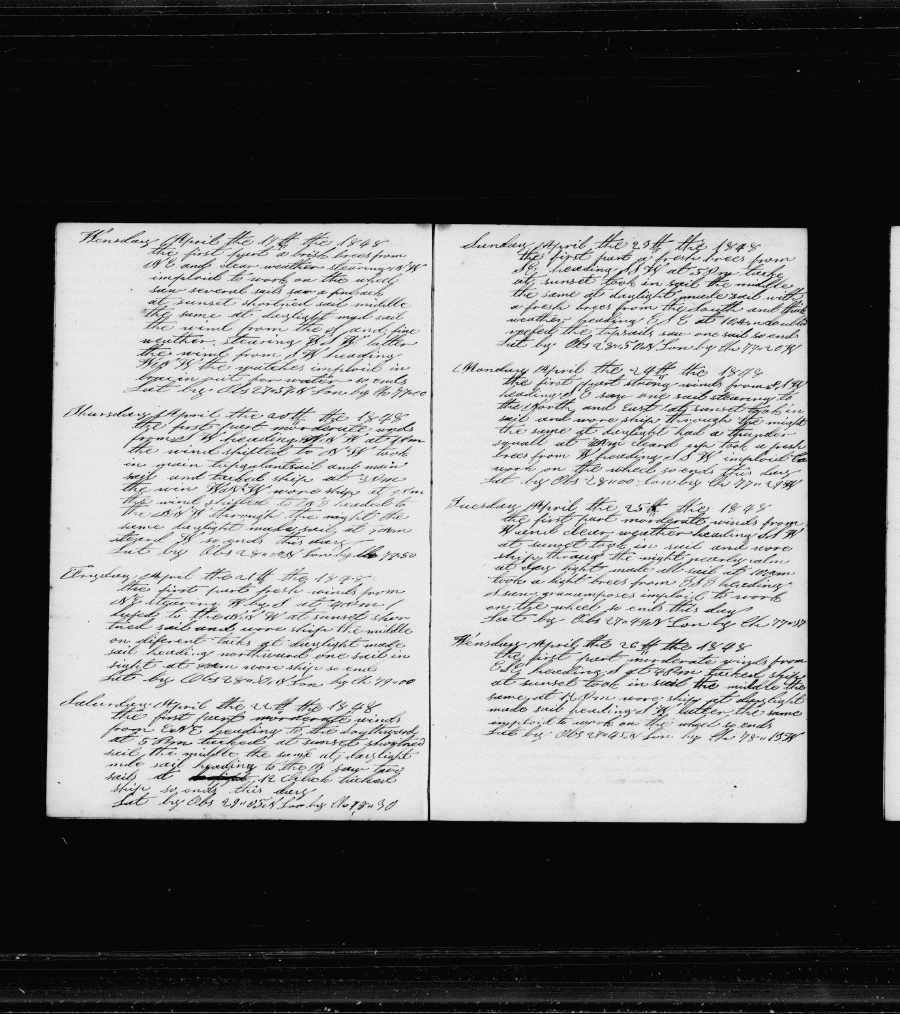 Wensday April the 19th the 1848
the first part a brisk brees from
N E and clear weather steering N W
imploid to work on the wheel
saw several sails saw a finback
at sunset shortned sail middle
the same at daylight made sail
the wind from the S and fine
weather steering W latter
the wind from S W heading
the watches imploid in
for water so ends
Lat by Obs 27"57 N Lon by Ch
Thursday April the 20th the 1848
the first part morderate winds
from S W heading at
the wind shifted to N W took
in main topgalantsail and main
sail and tacked ship at
the win wore ship at
the wind shifted to headed to
the N N W through the night the
same daylight made sail at
W so ends this day
Lat by Obs Lon by
Fryday April the 21th the 1848
the first part fresh winds from
N E steering W by S at 4 pm
lufed to the N N W at sunset shor
tned sail and wore ship the middle
on diferent tacks at daylight made
sail heading northward one sail in
sight at wore ship so ends
Lat by Obs Lon by Ch
Saturday April the 22th the 1848
the first part morderate winds
from ENE heading to the southward
at 5 Pm tacked at sunset shortned
sail the middle the same at daylight
made sail heading to the N saw two
sails at 12 Oclock tacked
ship so ends this day
Lat by Obs 29"05 N Lon by Ch 78"30
Sunday April the 23th the 1848
the first part a fresh brees from
heading S W at 5 Pm tackt
at sunset took in sail the middle
the same at daylight made sail with
a fresh brees from the South and thick
weather heading E S E at 10 Am
reefed the topsails saw one sail so ends
Lat by Obs 28"50 N Lon by Ch 77"20 W
Monday April the 24th the 1848
the first part strong winds from
heading saw one sail steering to
the North and East at sunset took in
sail and wore ship through the night
the same at daylight had a thunder
squall at cleard up took a fresh
brees from W heading S S W imploid to
work on the wheel so ends this day
Lat by Obs 28"00 Lon by Ch 77"29 W
Tuesday April the 25th the 1848
the first part morderate winds from
W and clear weather heading S S W
at sunset took in sail and wore
ship throug the night nearly calm
at day light made all sail at
took a light brees from heading
S saw gramposes imploid to work
on the wheel so ends this day
Lat by Obs 27"44 N Lon by Ch 77"37
Wensday April the 26th the 1848
the first part morderate winds from
ESE heading S at tacked ship
at sunset took in sail the middle the
same at 12 Pm wore ship at daylight
made sail heading S W latter the same
imploid to work on the wheel so ends
Lat by Obs 27"45 N Lon by Ch 78"15 W